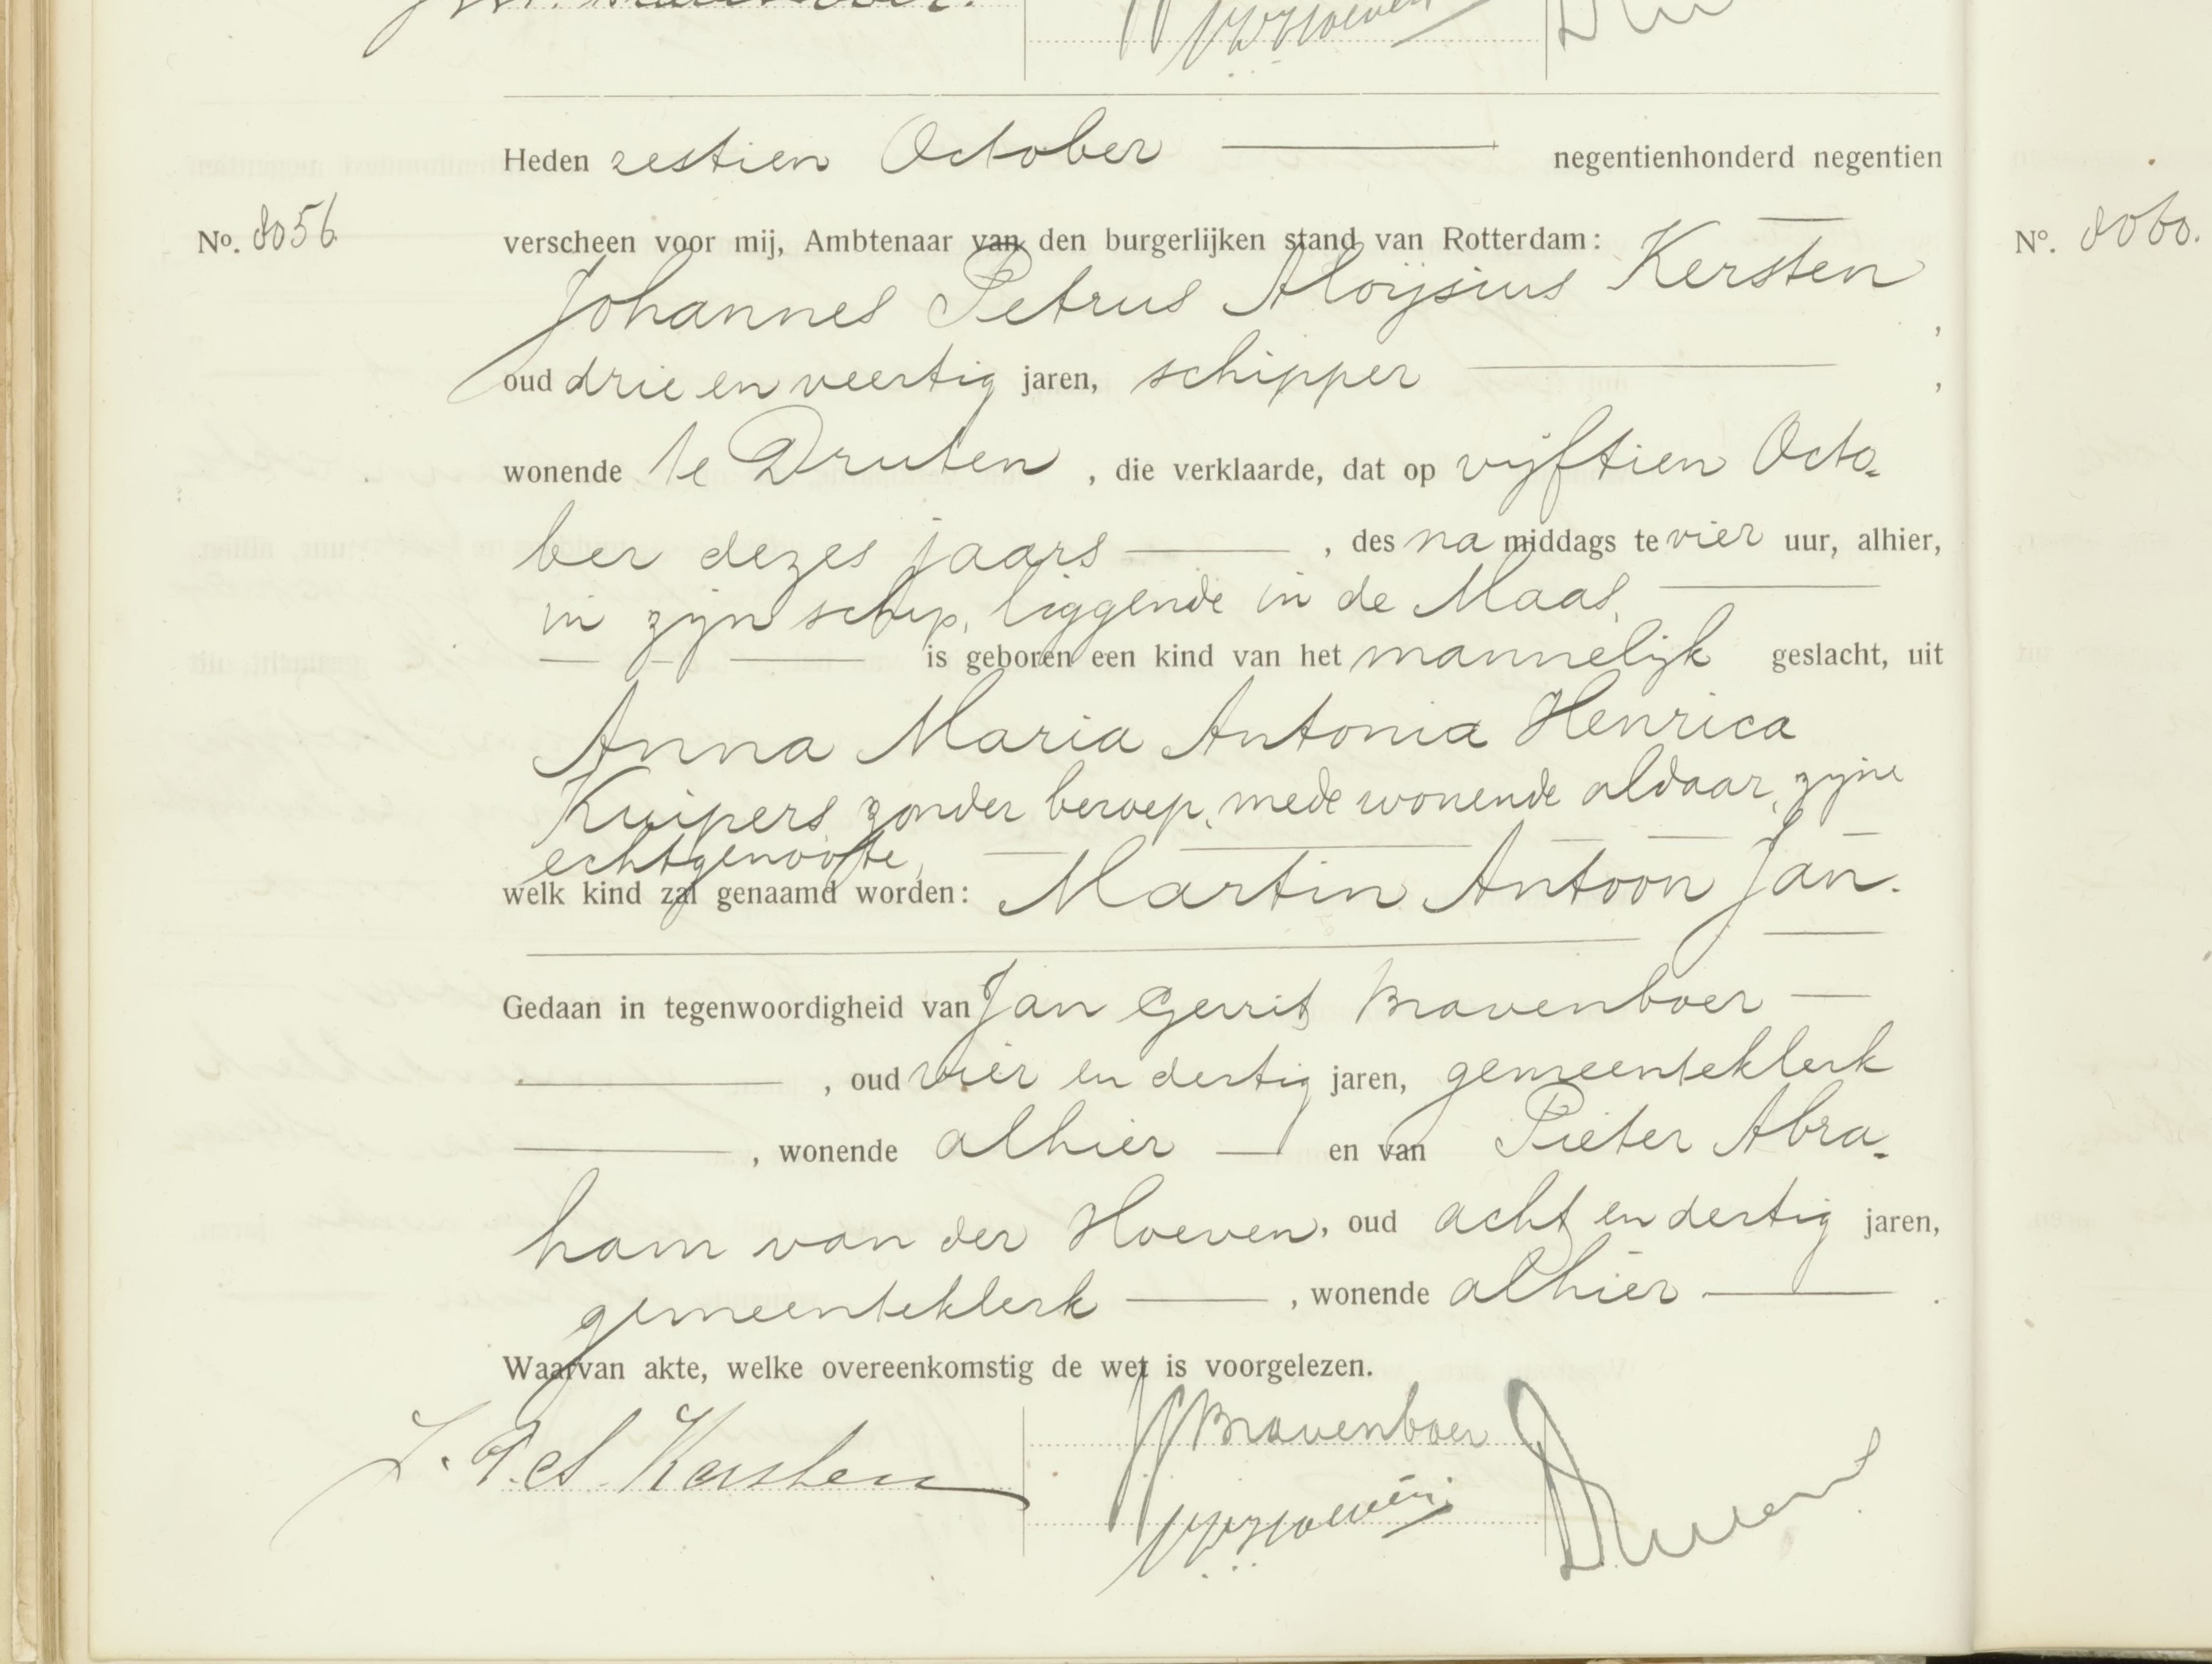 Heden zestien October negentienhonderd negentien
No. 8056 verscheen voor mij, Ambtenaar van den burgerlijken stand van Rotterdam:
Johannes Petrus Aloijsius Kersten,
oud drie en veertig jaren, schipper,
wonende te Druten, die verklaarde, dat op vijftien Octo=
ber dezes jaars, des na middags te vier uur, alhier,
in zijn schip, liggende in de Maas,
is geboren een kind van het mannelijk geslacht, uit
Anna Maria Antonia Henrica
Kuipers, zonder beroep, mede wonende aldaar, zijne
echtgenoote,
welk kind zal genaamd worden: Martin Antoon Jan.
Gedaan in tegenwoordigheid van Jan Gerrit Bravenboer
, oud vier en dertig jaren, gemeenteklerk
, wonende alhier en van Pieter Abra=
ham van der Hoeven, oud acht en dertig jaren,
gemeenteklerk, wonende alhier.
Waarvan akte, welke overeenkomstig de wet is voorgelezen.
J. P. A. Kersten
Bravenboer
No. 8060.